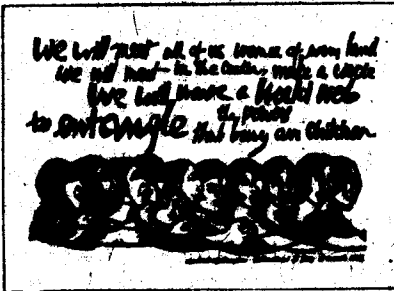 We will meet all of us women of every land
we will meet in the center, make a circle
We will weave a World Web
to entangle the powers
that bury our children